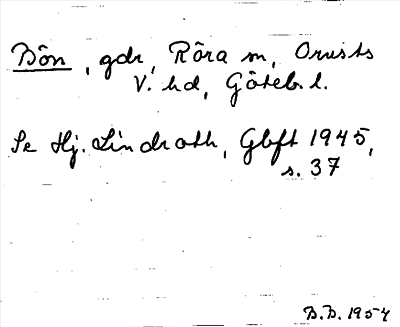 Bön, gdr, Röra sn, Orusts
V. hd, Göteb. l.
Se Hj. Lindroth, Gbft 1945,
s. 37
B.B. 1954